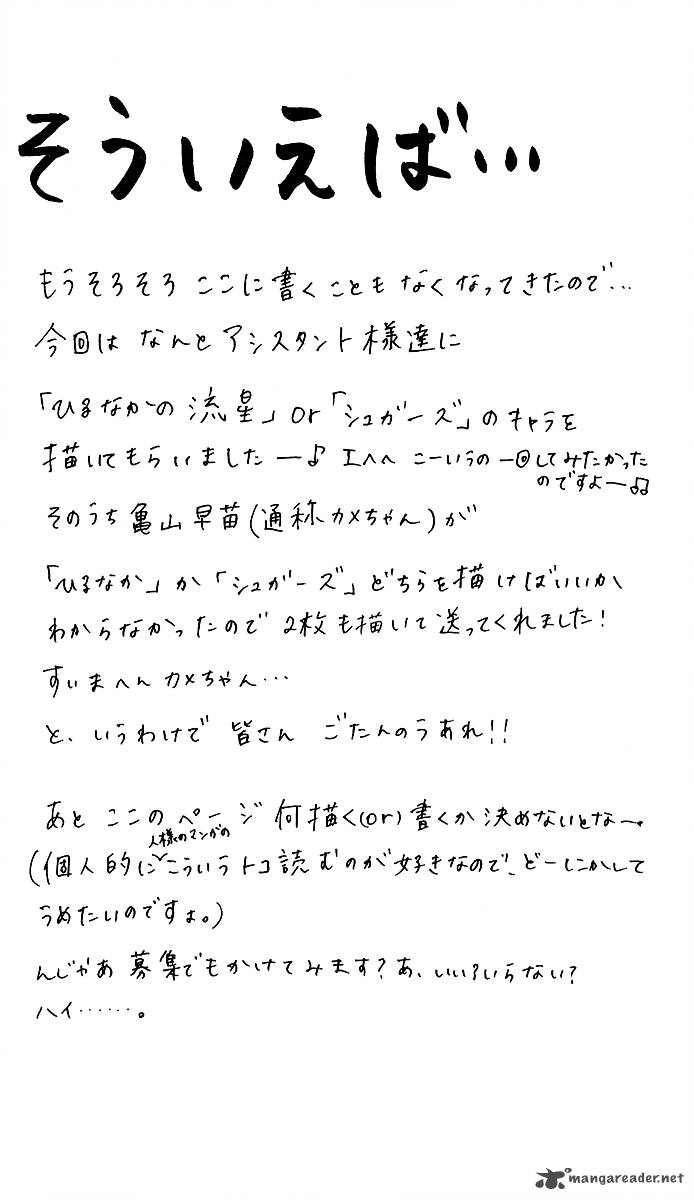 そういえば…
もうそろそろ ここに書くことも なくなってきたので…
今回は なんと アシスタント様達に
「ひるなかの 流星」or「シュガーズ」のキャラを
描いてもらいましたー♪ エへへ こーいうの 一回してみたかった
のですよー♫
そのうち 亀山早苗(通称カメちゃん)が
「ひるなか」か「シュガーズ」どちらを描けばいいか
わからなかったので 2枚も描いて送ってくれました!
すいまへん カメちゃん…
と、いうわけで 皆さん ごたんのうあれ!!
あと ここの ページ 何描く(or)書くか 決めないとなー。
人様のマンガの
(個人的に こういうトコ読むのが好きなので、どーしにかして
うめたいのですよ。)
んじゃあ 募集でもかけてみます? あ、いい?いらない?
ハイ……。
mangareader.net